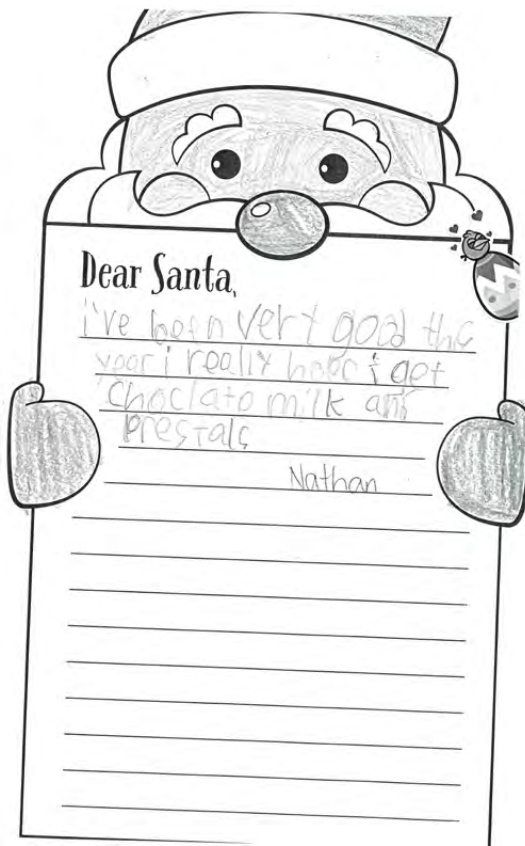 Dear Santa,
i've been very good this
year i really hope i get
choclato milk and
prestals
Nathan